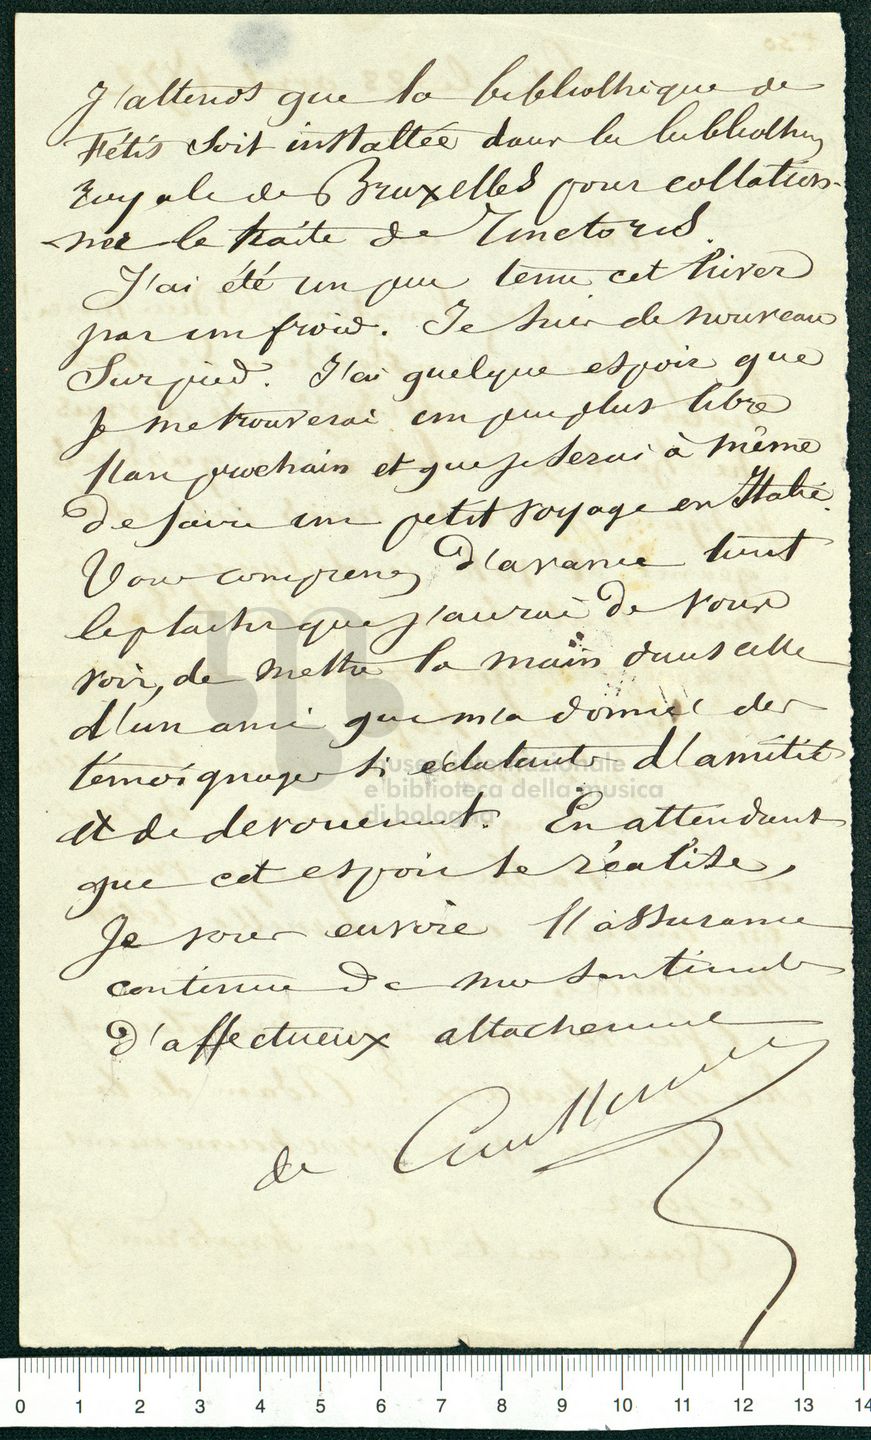 J'attends que la bibliothèque de
Fétis soit installée dans la biblioth
royale de Bruxelles pour collation-
ner le traité de Tinctoris.
J'ai été un peu tenu cet hiver
par un froid. Je suis de nouveau
sur pied. J'ai quelque espoir que
je me trouverai un peu plus libre
l'an prochain et que je serai à même
de faire un petit voyage en Italie.
Vous comprenez d'avance tout
le plaisir que j'aurai de vous
voir, de mettre la main dans celle
d'un ami qui m'a donné des
témoignages si éclatants d'amitié
et de dévouement. En attendant
que cet espoir se réalise,
Je vous envoie l'assurance
continue de mes sentiments
d'affectueux attachement
de Coussemaker
museo internazionale
e biblioteca della musica
di bologna
0 1 2 3 4 5 6 7 8 9 10 11 12 13 14